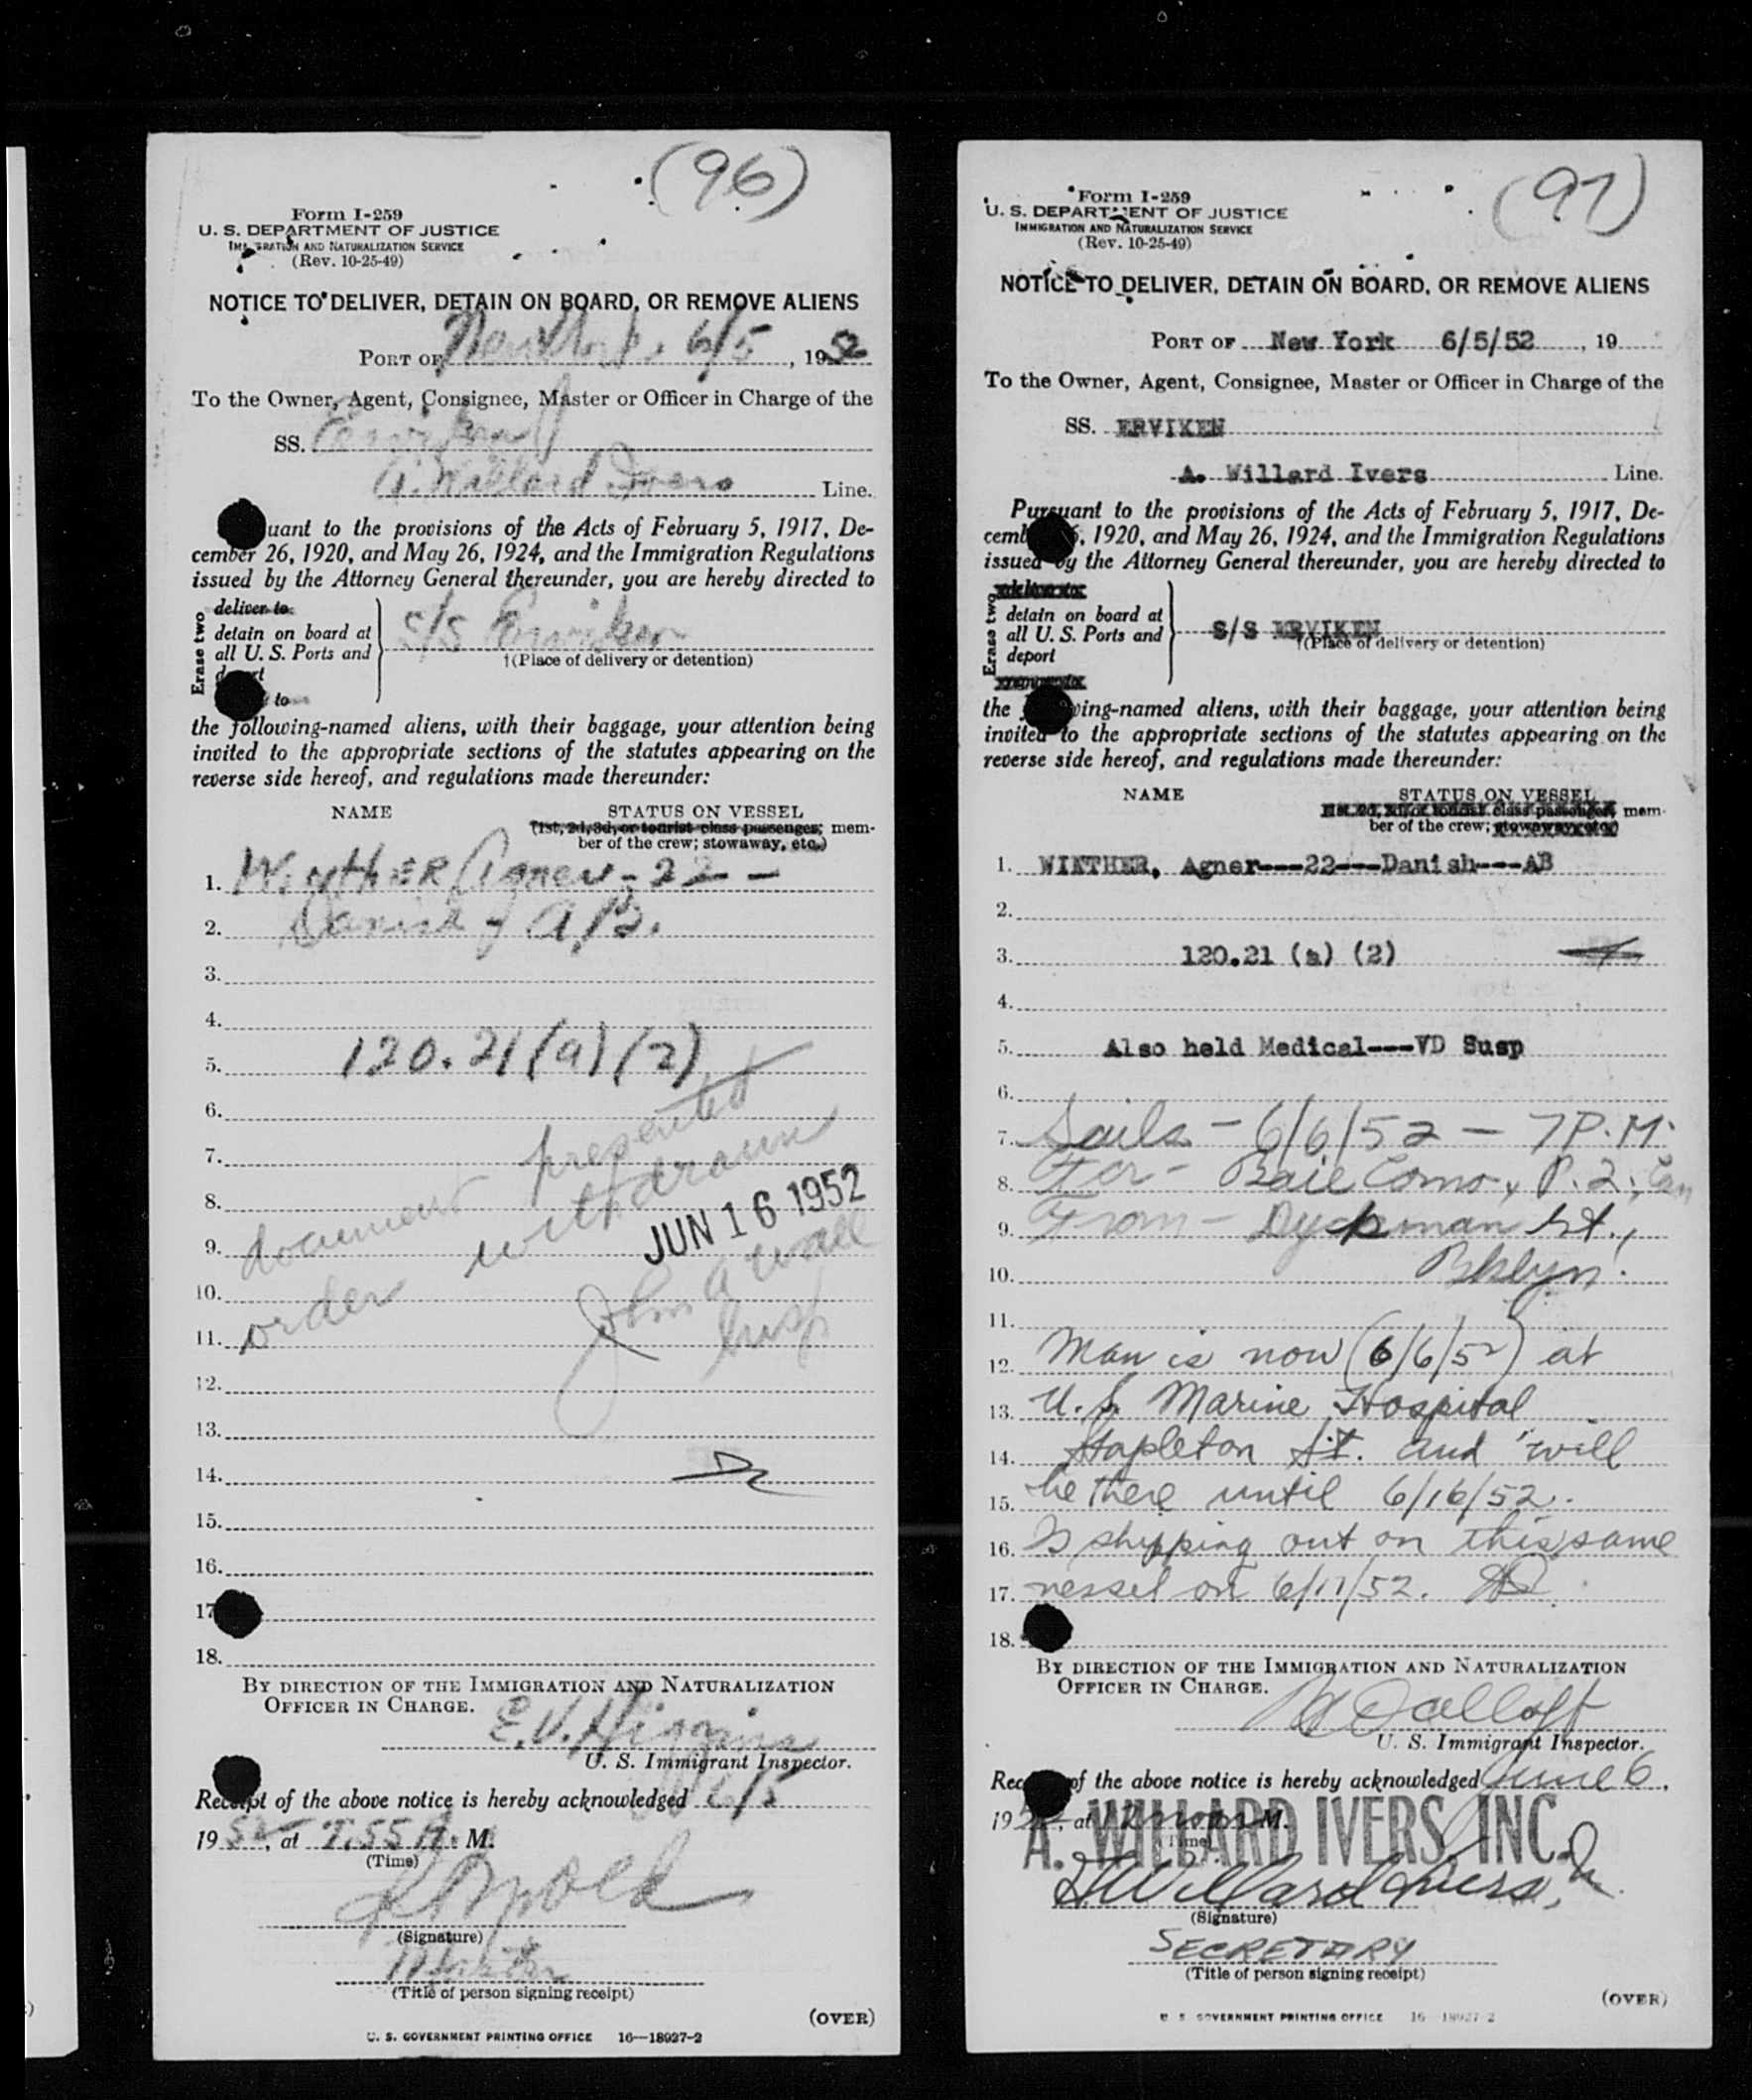 (96)
Form I-259
U. S. DEPARTMENT OF JUSTICE
IMMIGRATION AND NATURALIZATION SERVICE
(Rev. 10-25-49)
NOTICE TO DELIVER, DETAIN ON BOARD, OR REMOVE ALIENS
PORT OF New York, 6/5, 1952
To the Owner, Agent, Consignee, Master or Officer in Charge of the
SS. Erviken
A. Willard Ivers Line.
uant to the provisions of the Acts of February 5, 1917, De-
cember 26, 1920, and May 26, 1924, and the Immigration Regulations
issued by the Attorney General thereunder, you are hereby directed to
Erase two
deliver to
detain on board at
all U. S. Ports and
to
S/S Erviken
†(Place of delivery or detention)
the following-named aliens, with their baggage, your attention being
invited to the appropriate sections of the statutes appearing on the
reverse side hereof, and regulations made thereunder:
NAME STATUS ON VESSEL
(1st, 2d, 3d, or tourist class passenger; mem-
ber of the crew; stowaway, etc.)
1. WINTHER Agner - 22 -
2. Danish - A.B.
3.
4.
5. 120.21 (a) (2)
6.
7.
8.
9.
10.
11.
document presented
order withdrawn
JUN 16 1952
John A Wall
Insp
12.
13.
14.
15.
16.
17
18.
BY DIRECTION OF THE IMMIGRATION AND NATURALIZATION
OFFICER IN CHARGE.
E. V. Higgins
U. S. Immigrant Inspector.
Receipt of the above notice is hereby acknowledged 6/5
1952, at 7.55 A. M.
(Time)
(Signature)
Master
(Title of person signing receipt)
(OVER)
U. S. GOVERNMENT PRINTING OFFICE 16—18927-2
(97)
Form I-259
U. S. DEPARTMENT OF JUSTICE
IMMIGRATION AND NATURALIZATION SERVICE
(Rev. 10-25-49)
NOTICE TO DELIVER, DETAIN ON BOARD, OR REMOVE ALIENS
PORT OF New York 6/5/52, 19
To the Owner, Agent, Consignee, Master or Officer in Charge of the
SS. ERVIKEN
A. Willard Ivers Line.
Pursuant to the provisions of the Acts of February 5, 1917, De-
cemb 6, 1920, and May 26, 1924, and the Immigration Regulations
issued by the Attorney General thereunder, you are hereby directed to
Erase two
detain on board at
all U. S. Ports and
deport
S/S ERVIKEN
†(Place of delivery or detention)
the wing-named aliens, with their baggage, your attention being
invited to the appropriate sections of the statutes appearing on the
reverse side hereof, and regulations made thereunder:
NAME STATUS ON VESSEL
(1st, 2d, 3d, or tourist class passenger; mem-
ber of the crew; stowaway, etc.)
1. WINTHER, Agner---22---Danish---AB
2.
3. 120.21 (a) (2)
4.
5. Also held Medical---VD Susp
6.
7. Sails - 6/6/52 - 7 P.M.
8. For - Baie Como, P.Q., Can
9. From - Dyckman St.,
10. Bklyn.
11.
12. Man is now (6/6/52) at
13. U.S. Marine Hospital
14. Stapleton S.I. and will
15. be there until 6/16/52.
16. Is shipping out on this same
17. vessel on 6/17/52.
18.
BY DIRECTION OF THE IMMIGRATION AND NATURALIZATION
OFFICER IN CHARGE.
U. S. Immigrant Inspector.
Rec of the above notice is hereby acknowledged June 6,
1952, at 12 noon M.
(Time)
A. WILLARD IVERS, INC.
A. Willard Ivers, Jr.
(Signature)
SECRETARY
(Title of person signing receipt)
(OVER)
U. S. GOVERNMENT PRINTING OFFICE 16—18927-2